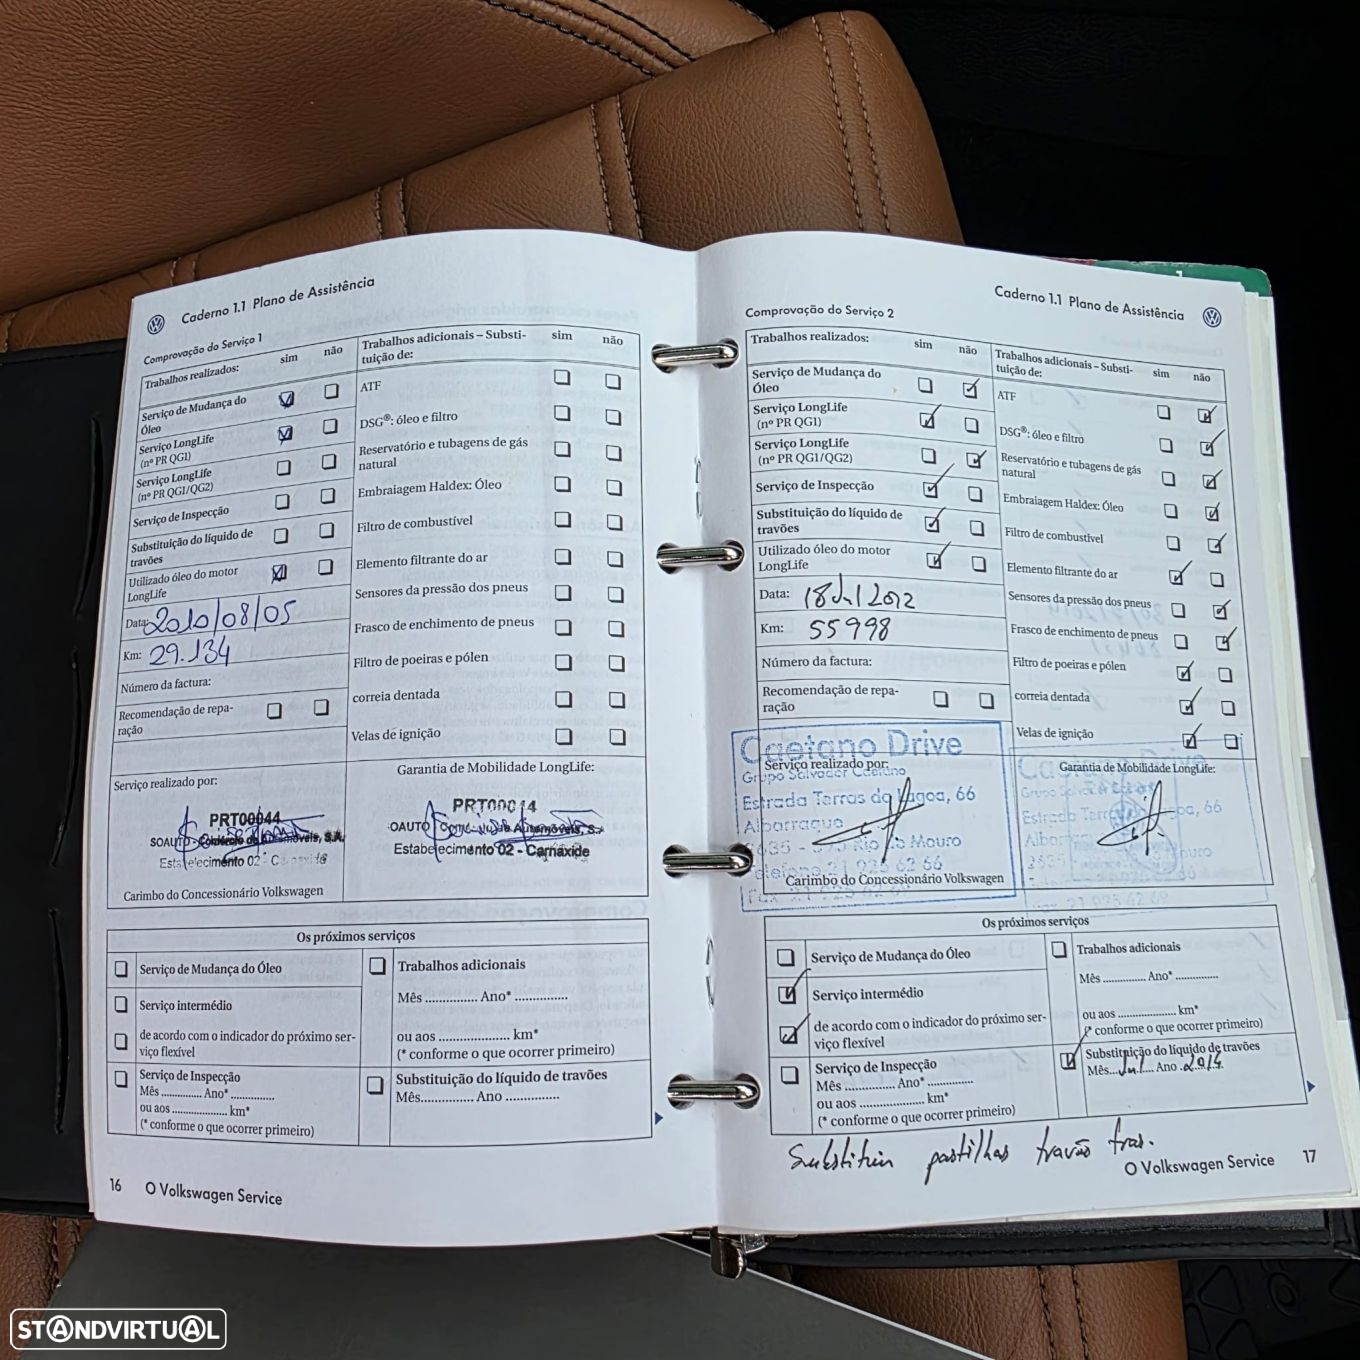 Caderno 1.1 Plano de Assistência
Comprovação do Serviço 1
Trabalhos realizados:
sim
não
Serviço de Mudança do
Óleo
Serviço LongLife
(nº PR QG1)
Serviço LongLife
(nº PR QG1/QG2)
Serviço de Inspecção
Substituição do líquido de
travões
Utilizado óleo do motor
LongLife
Data: 2010/08/05
Km: 29.134
Número da factura:
Recomendação de repa-
ração
Trabalhos adicionais – Substi-
tuição de:
sim
não
ATF
DSG®: óleo e filtro
Reservatório e tubagens de gás
natural
Embraiagem Haldex: Óleo
Filtro de combustível
Elemento filtrante do ar
Sensores da pressão dos pneus
Frasco de enchimento de pneus
Filtro de poeiras e pólen
correia dentada
Velas de ignição
Serviço realizado por:
PRT00044
Estabelecimento 02 - Carnaxide
Carimbo do Concessionário Volkswagen
Garantia de Mobilidade LongLife:
Estabelecimento 02 - Carnaxide
Os próximos serviços
Serviço de Mudança do Óleo
Serviço intermédio
de acordo com o indicador do próximo ser-
viço flexível
Serviço de Inspecção
Mês .............. Ano* ..............
ou aos ...................... km*
(* conforme o que ocorrer primeiro)
Trabalhos adicionais
Mês .............. Ano* ..............
ou aos ...................... km*
(* conforme o que ocorrer primeiro)
Substituição do líquido de travões
Mês.............. Ano ..............
16 O Volkswagen Service
Caderno 1.1 Plano de Assistência
Comprovação do Serviço 2
Trabalhos realizados:
sim
não
Serviço de Mudança do
Óleo
Serviço LongLife
(nº PR QG1)
Serviço LongLife
(nº PR QG1/QG2)
Serviço de Inspecção
Substituição do líquido de
travões
Utilizado óleo do motor
LongLife
Data: 18 Jul 2012
Km: 55998
Número da factura:
Recomendação de repa-
ração
Trabalhos adicionais – Substi-
tuição de:
sim
não
ATF
DSG®: óleo e filtro
Reservatório e tubagens de gás
natural
Embraiagem Haldex: Óleo
Filtro de combustível
Elemento filtrante do ar
Sensores da pressão dos pneus
Frasco de enchimento de pneus
Filtro de poeiras e pólen
correia dentada
Velas de ignição
Caetano Drive
Serviço realizado por:
Grupo Salvador Caetano
Estrada Terras da Lagoa, 66
Albarraque
Rio de Mouro
Carimbo do Concessionário Volkswagen
Garantia de Mobilidade LongLife:
Os próximos serviços
Serviço de Mudança do Óleo
Serviço intermédio
de acordo com o indicador do próximo ser-
viço flexível
Serviço de Inspecção
Mês .............. Ano* ..............
ou aos ...................... km*
(* conforme o que ocorrer primeiro)
Trabalhos adicionais
Mês .............. Ano* ..............
ou aos ...................... km*
(* conforme o que ocorrer primeiro)
Substituição do líquido de travões
Mês...Jul... Ano .2014.
Substituir pastilhas travão tras.
O Volkswagen Service 17
STANDVIRTUAL